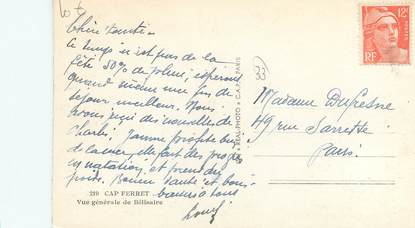 Chère tante
Le temps n'est pas de la
fête 50% de pluie, espérons
quand même une fin de
séjour meilleur. Nous
avons reçu des nouvelles de
Charles. profite bien
de la mer, elle fait des progrès
en natation et prend des
poids. Bonne santé et bons
baisers à tous
33
12F
POSTES
RF
RÉAL-PHOTO C.A.P. PARIS
Madame Dufresne
49 rue Sarrette
Paris
219 CAP FERRET
Vue générale de Bélisaire